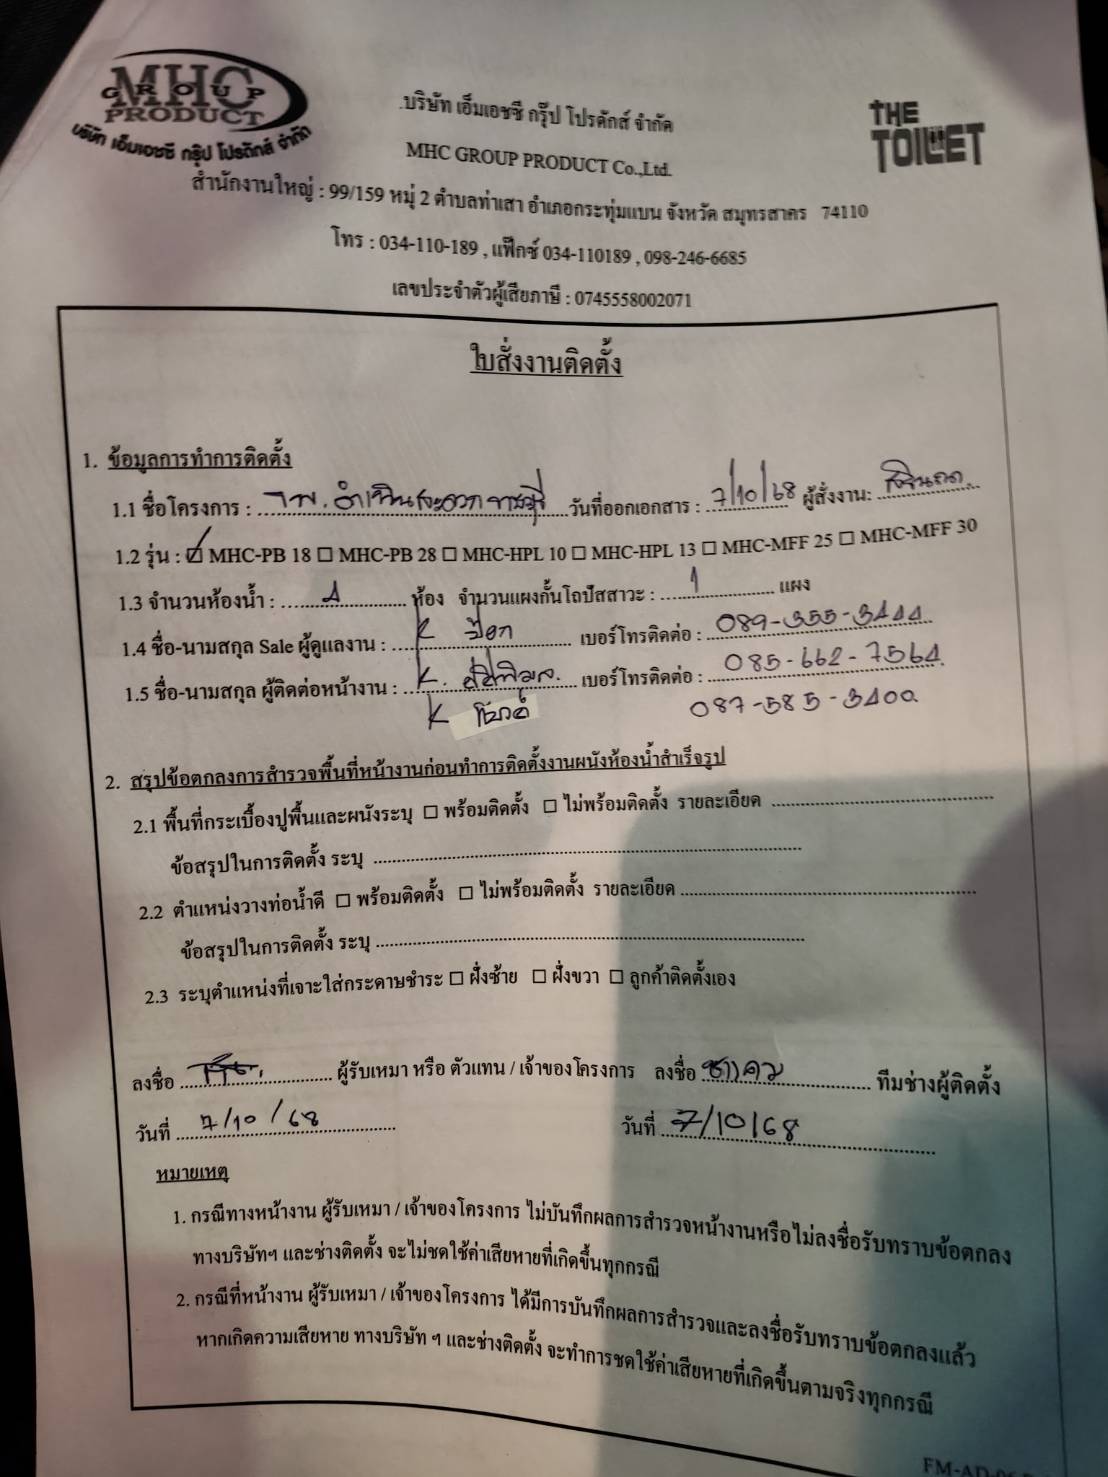 MHC
GROUP
PRODUCT
บริษัท เอ็มเอชซี กรุ๊ป โปรดักส์ จำกัด
.บริษัท เอ็มเอชซี กรุ๊ป โปรดักส์ จำกัด
THE
TOILET
MHC GROUP PRODUCT Co.,Ltd.
สำนักงานใหญ่ : 99/159 หมู่ 2 ตำบลท่าเสา อำเภอกระทุ่มแบน จังหวัด สมุทรสาคร 74110
โทร : 034-110-189 , แฟ๊กซ์ 034-110189 , 098-246-6685
เลขประจำตัวผู้เสียภาษี : 0745558002071
ใบสั่งงานติดตั้ง
1. ข้อมูลการทำการติดตั้ง
1.1 ชื่อโครงการ : รพ. ดำเนินสะดวก ราชบุรี วันที่ออกเอกสาร : 7/10/68 ผู้สั่งงาน:
1.2 รุ่น : ☑ MHC-PB 18 ☐ MHC-PB 28 ☐ MHC-HPL 10 ☐ MHC-HPL 13 ☐ MHC-MFF 25 ☐ MHC-MFF 30
1.3 จำนวนห้องน้ำ : 4 ห้อง จำนวนแผงกั้นโถปัสสาวะ : 1 แผง
1.4 ชื่อ-นามสกุล Sale ผู้ดูแลงาน : K เบอร์โทรติดต่อ : 089-355-3444
1.5 ชื่อ-นามสกุล ผู้ติดต่อหน้างาน : K. เบอร์โทรติดต่อ : 085-662-7564
K 087-585-3400
2. สรุปข้อตกลงการสำรวจพื้นที่หน้างานก่อนทำการติดตั้งงานผนังห้องน้ำสำเร็จรูป
2.1 พื้นที่กระเบื้องปูพื้นและผนังระบุ ☐ พร้อมติดตั้ง ☐ ไม่พร้อมติดตั้ง รายละเอียด
ข้อสรุปในการติดตั้ง ระบุ
2.2 ตำแหน่งวางท่อน้ำดี ☐ พร้อมติดตั้ง ☐ ไม่พร้อมติดตั้ง รายละเอียด
ข้อสรุปในการติดตั้ง ระบุ
2.3 ระบุตำแหน่งที่เจาะใส่กระดาษชำระ ☐ ฝั่งซ้าย ☐ ฝั่งขวา ☐ ลูกค้าติดตั้งเอง
ลงชื่อ ผู้รับเหมา หรือ ตัวแทน / เจ้าของโครงการ ลงชื่อ ทีมช่างผู้ติดตั้ง
วันที่ 7/10/68 วันที่ 7/10/68
หมายเหตุ
1. กรณีทางหน้างาน ผู้รับเหมา / เจ้าของโครงการ ไม่บันทึกผลการสำรวจหน้างานหรือไม่ลงชื่อรับทราบข้อตกลง
ทางบริษัทฯ และช่างติดตั้ง จะไม่ชดใช้ค่าเสียหายที่เกิดขึ้นทุกกรณี
2. กรณีที่หน้างาน ผู้รับเหมา / เจ้าของโครงการ ได้มีการบันทึกผลการสำรวจและลงชื่อรับทราบข้อตกลงแล้ว
หากเกิดความเสียหาย ทางบริษัท ฯ และช่างติดตั้ง จะทำการชดใช้ค่าเสียหายที่เกิดขึ้นตามจริงทุกกรณี